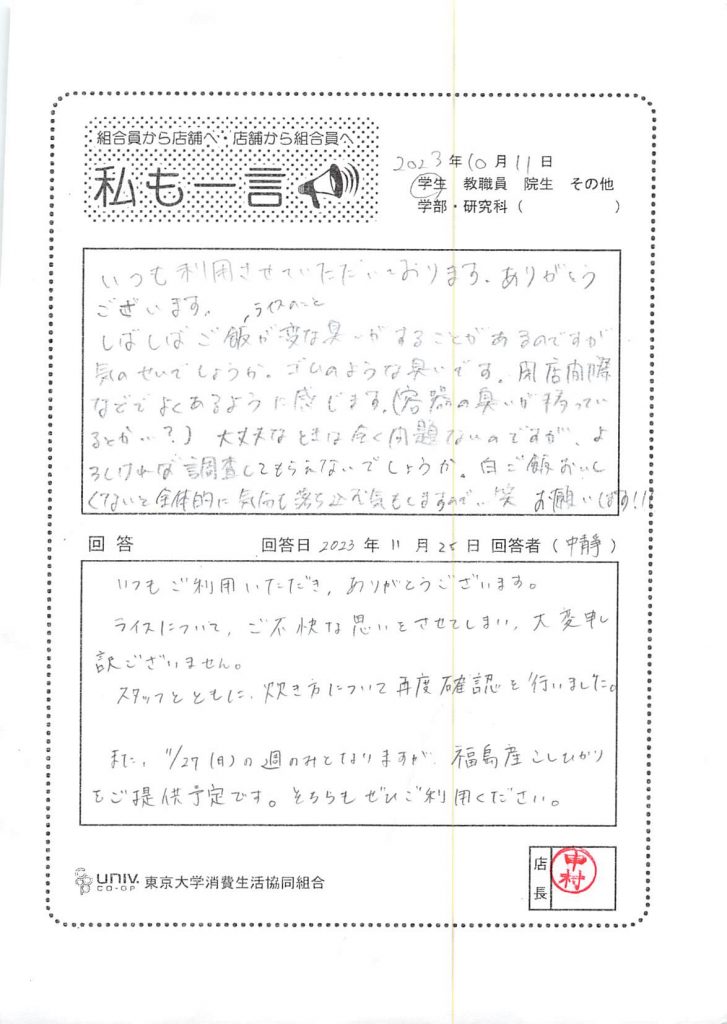 組合員から店舗へ・店舗から組合員へ
私も一言
2023年10月11日
学生 教職員 院生 その他
学部・研究科（　　　）
いつも利用させていただいております。ありがとう
ございます。
ライスのこと
しばしばご飯が変な臭いがすることがあるのですが
気のせいでしょうか。ゴムのような臭いです。閉店間際
などでよくあるように感じます。(容器の臭いが移ってい
るとかい?) 大丈夫なときは全く問題ないのですが、よ
ろしければ調査してもらえないでしょうか。白ご飯おいし
くないと全体的に気分も落ち込む気もしますので、笑 お願いします!!
回答 回答日 2023年11月25日 回答者（中静）
いつもご利用いただき、ありがとうございます。
ライスについて、ご不快な思いをさせてしまい、大変申し
訳ございません。
スタッフとともに、炊き方について再度確認を行いました。
また、11/27(月)の週のみとなりますが、福島産こしひかり
をご提供予定です。そちらもぜひご利用ください。
UNIV. CO-OP 東京大学消費生活協同組合
店長 中村